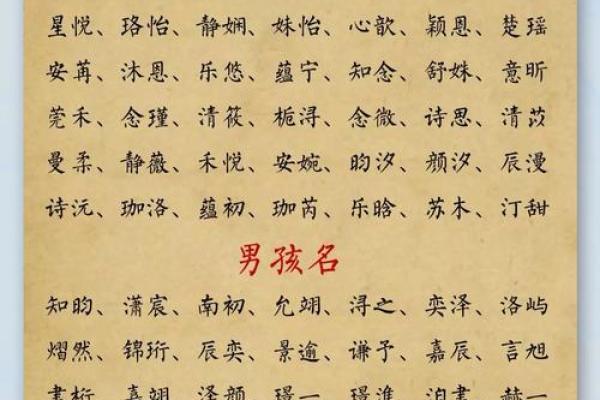 星悦、珞怡、静娴、姝怡、心歆、颖恩、楚瑶
安苒、沐恩、乐悠、蕴宁、知念、舒姝、意昕
莞禾、念瑾、清筱、栀浔、念微、诗思、清苡
曼柔、静薇、禾悦、安婉、昀汐、颜汐、辰漫
诗沅、珈洛、蕴初、珈芮、乐晗、苏木、汀甜
男孩名
知昀、潇宸、南初、允翊、浔之、奕泽、洛屿
熠然、锦珩、辰奕、景逾、谦予、嘉辰、言旭
书桁、嘉翊、泽颜、璟一、璟淮、泊书、赫一